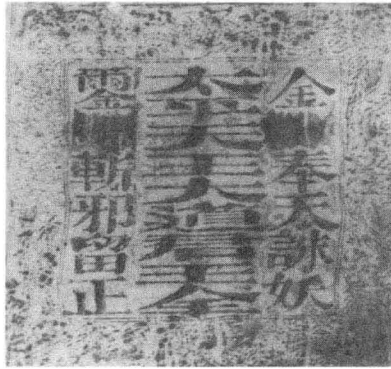 金奉天誅妖
太平天王大道君王全
斬邪留正